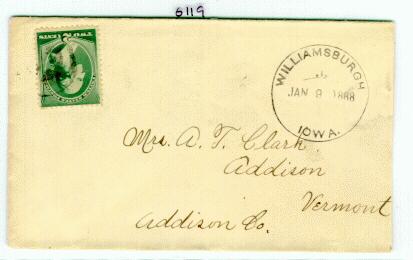 6119
TWO CENTS
WILLIAMSBURGH
JAN 9 1888
IOWA.
Mrs. A. T. Clark.
Addison
Vermont
Addison Co.